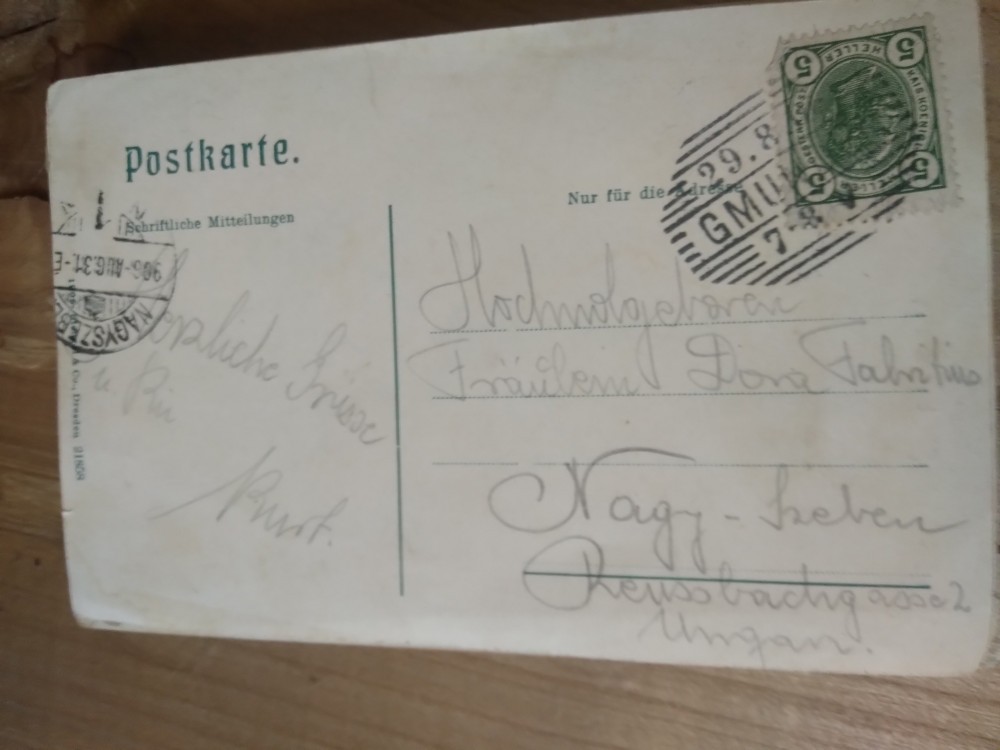 Postkarte.
Schriftliche Mitteilungen
Nur für die Adresse
5 HELLER 5
5 HELLER 5
29.8
GMU
7-8
906-AUG.31.-E
NAGYSZEBE
& Co., Dresden 21858
Herzliche Grüsse
Kurt.
Hochwolgeboren
Fräulein Dora Fabritius
Nagy-Szeben
Reussbachgasse 2
Ungarn.